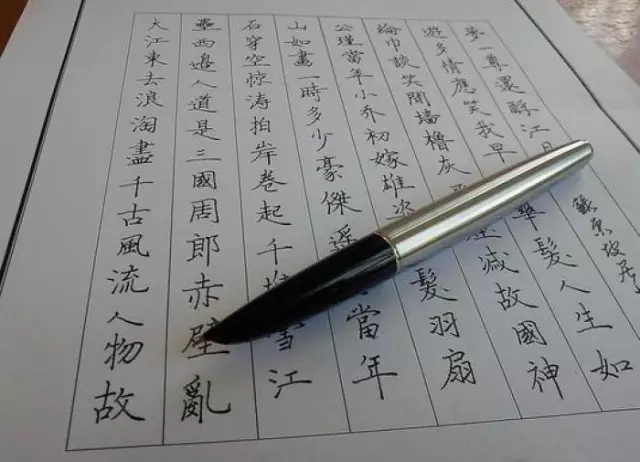 大江東去浪淘盡千古風流人物故
壘西邊人道是三國周郎赤壁亂
石穿空惊涛拍岸卷起千堆雪江
山如畫一時多少豪傑遥當年
公瑾當年小乔初嫁雄姿髮羽扇
綸巾談笑間墻櫓灰滅故國神
遊多情應笑我早華髮人生如
夢一尊還酹江月